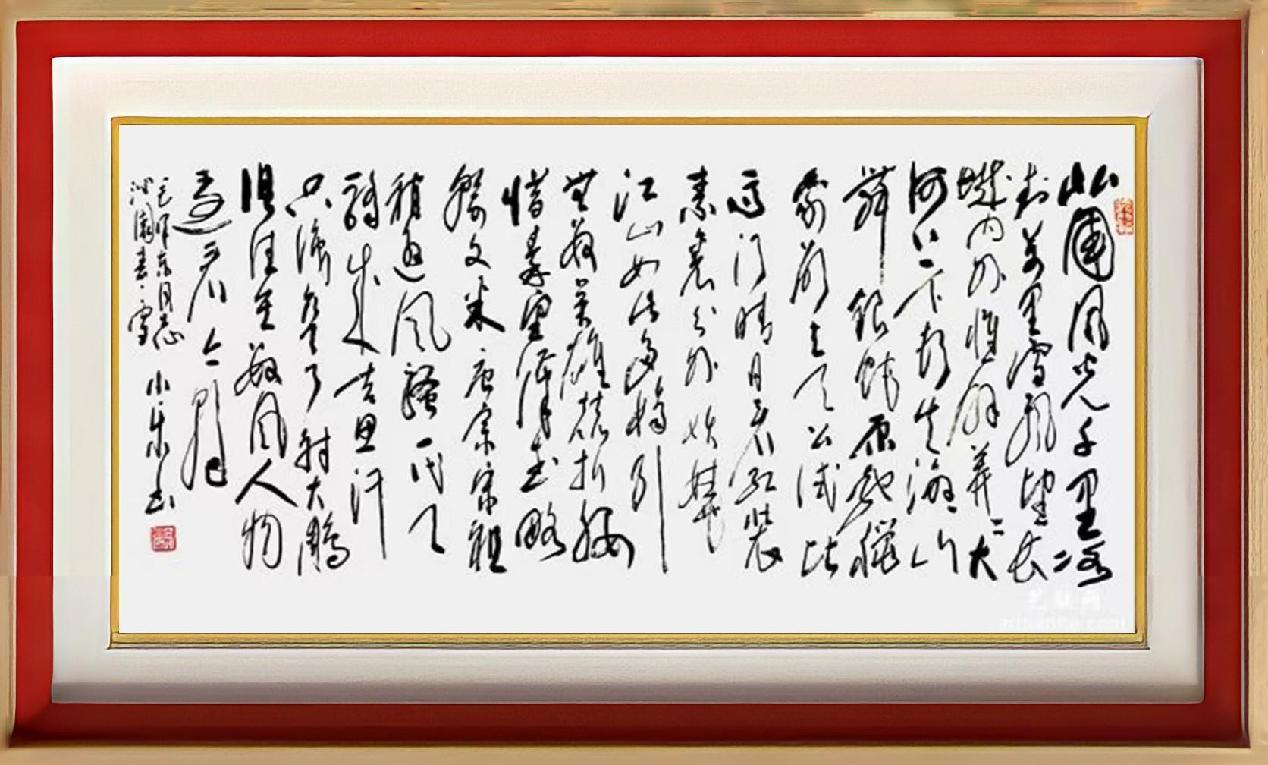 北國风光千里冰
封万里雪飘望长
城内外惟余莽莽大
河上下顿失滔滔山
舞银蛇原驰蜡
象欲与天公试比
高须晴日看红装
素裹分外妖娆
江山如此多娇引
無数英雄竞折腰
惜秦皇汉武略
输文采唐宗宋祖
稍逊风骚一代天
骄成吉思汗
只识弯弓射大雕
俱往矣数风流人物
还看今朝
毛泽东同志
沁園春·雪
小乐书